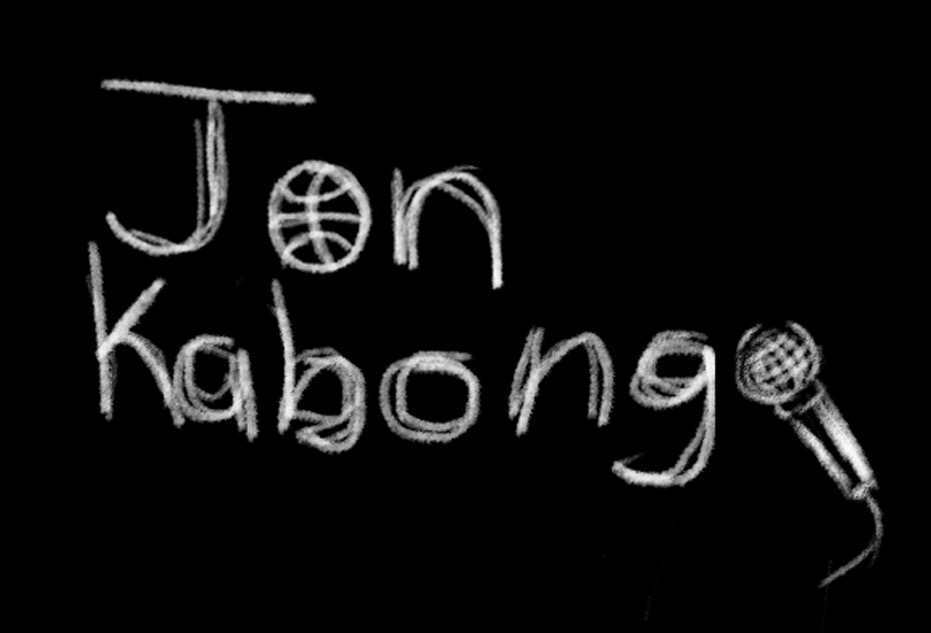 Jon
Kabongo